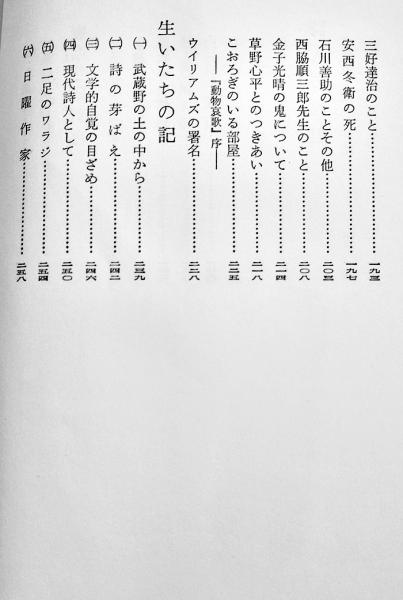 三好達治のこと……………一九三
安西冬衛の死……………一九七
石川善助のことその他……………二〇三
西脇順三郎先生のこと……………二〇八
金子光晴の鬼について……………二一四
草野心平とのつきあい……………二一八
こおろぎのいる部屋……………二二五
――『動物哀歌』序――
ウイリアムズの署名……………二二八
生いたちの記
㈠ 武蔵野の土の中から……………二三九
㈡ 詩の芽ばえ……………二四二
㈢ 文学的自覚の目ざめ……………二四六
㈣ 現代詩人として……………二五〇
㈤ 二足のワラジ……………二五四
㈥ 日曜作家……………二五八